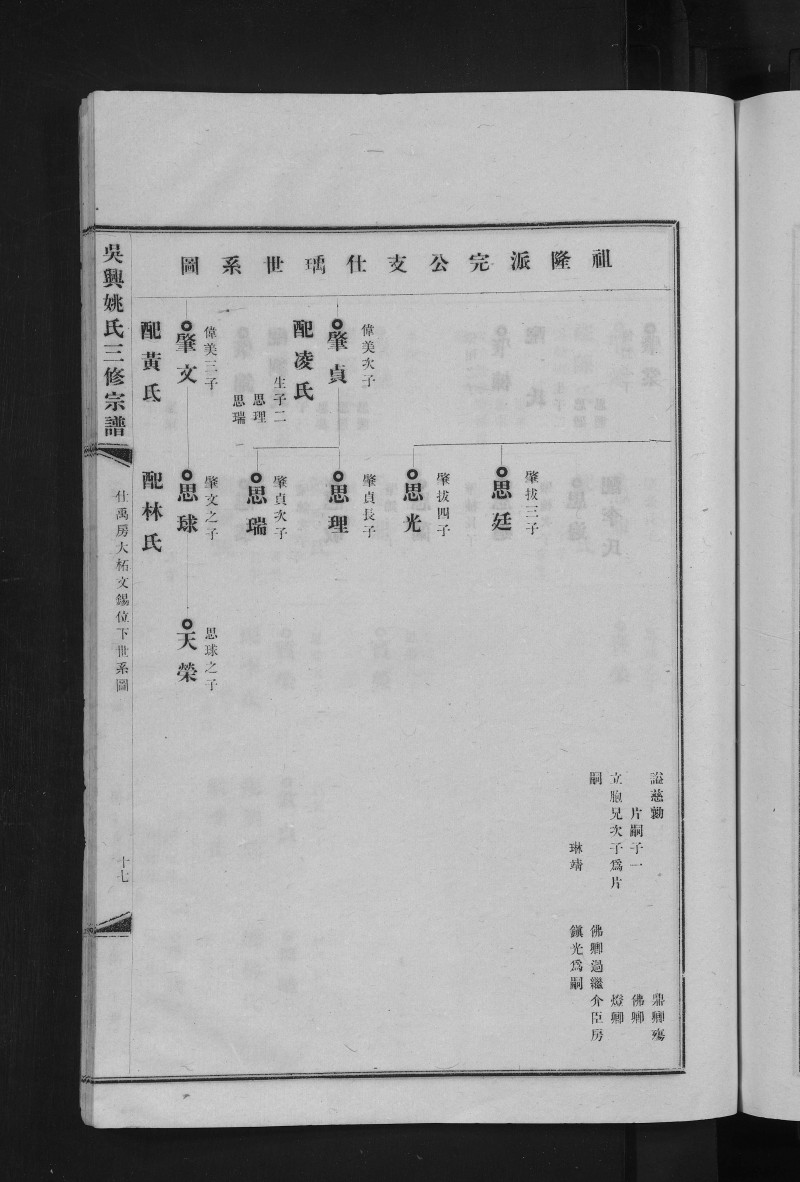 祖隆派完公支仕瑀世系圖
肇拔三子
思廷
肇拔四子
思光
偉美次子
肇貞
配凌氏
生子二
思理
思瑞
肇貞長子
思理
肇貞次子
思瑞
偉美三子
肇文
配黃氏
肇文之子
思球
配林氏
思球之子
天榮
諡慈勤
片嗣子一
立胞兄次子為片
嗣
琳靖
鼎卿殤
佛卿
燈卿
佛卿過繼介臣房
鎭光為嗣
吳興姚氏三修宗譜
仕禹房大柘文錫位下世系圖
十七